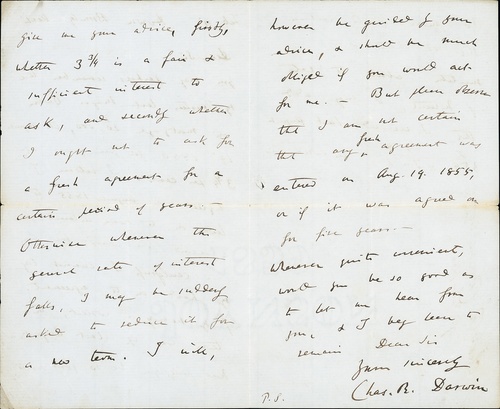 give me your advice, firstly,
whether 3 3/4 is a fair &
sufficient interest to
ask, and secondly whether
I ought not to ask for
a fresh agreement for a
certain period of years —
Otherwise whenever the
general rate of interest
falls, I may be suddenly
asked to reduce it for
a new term. I will,
however be guided by your
advice, & shall be much
obliged if you would act
for me. — But please observe
that I am not certain
that any fresh agreement was
entered on Aug. 19. 1855,
or if it was agreed on
for five years. —
Whenever quite convenient,
would you be so good as
to let me hear from
you, & I beg leave to
remain Dear Sir
Yours sincerely
Chas. R. Darwin
P.S.